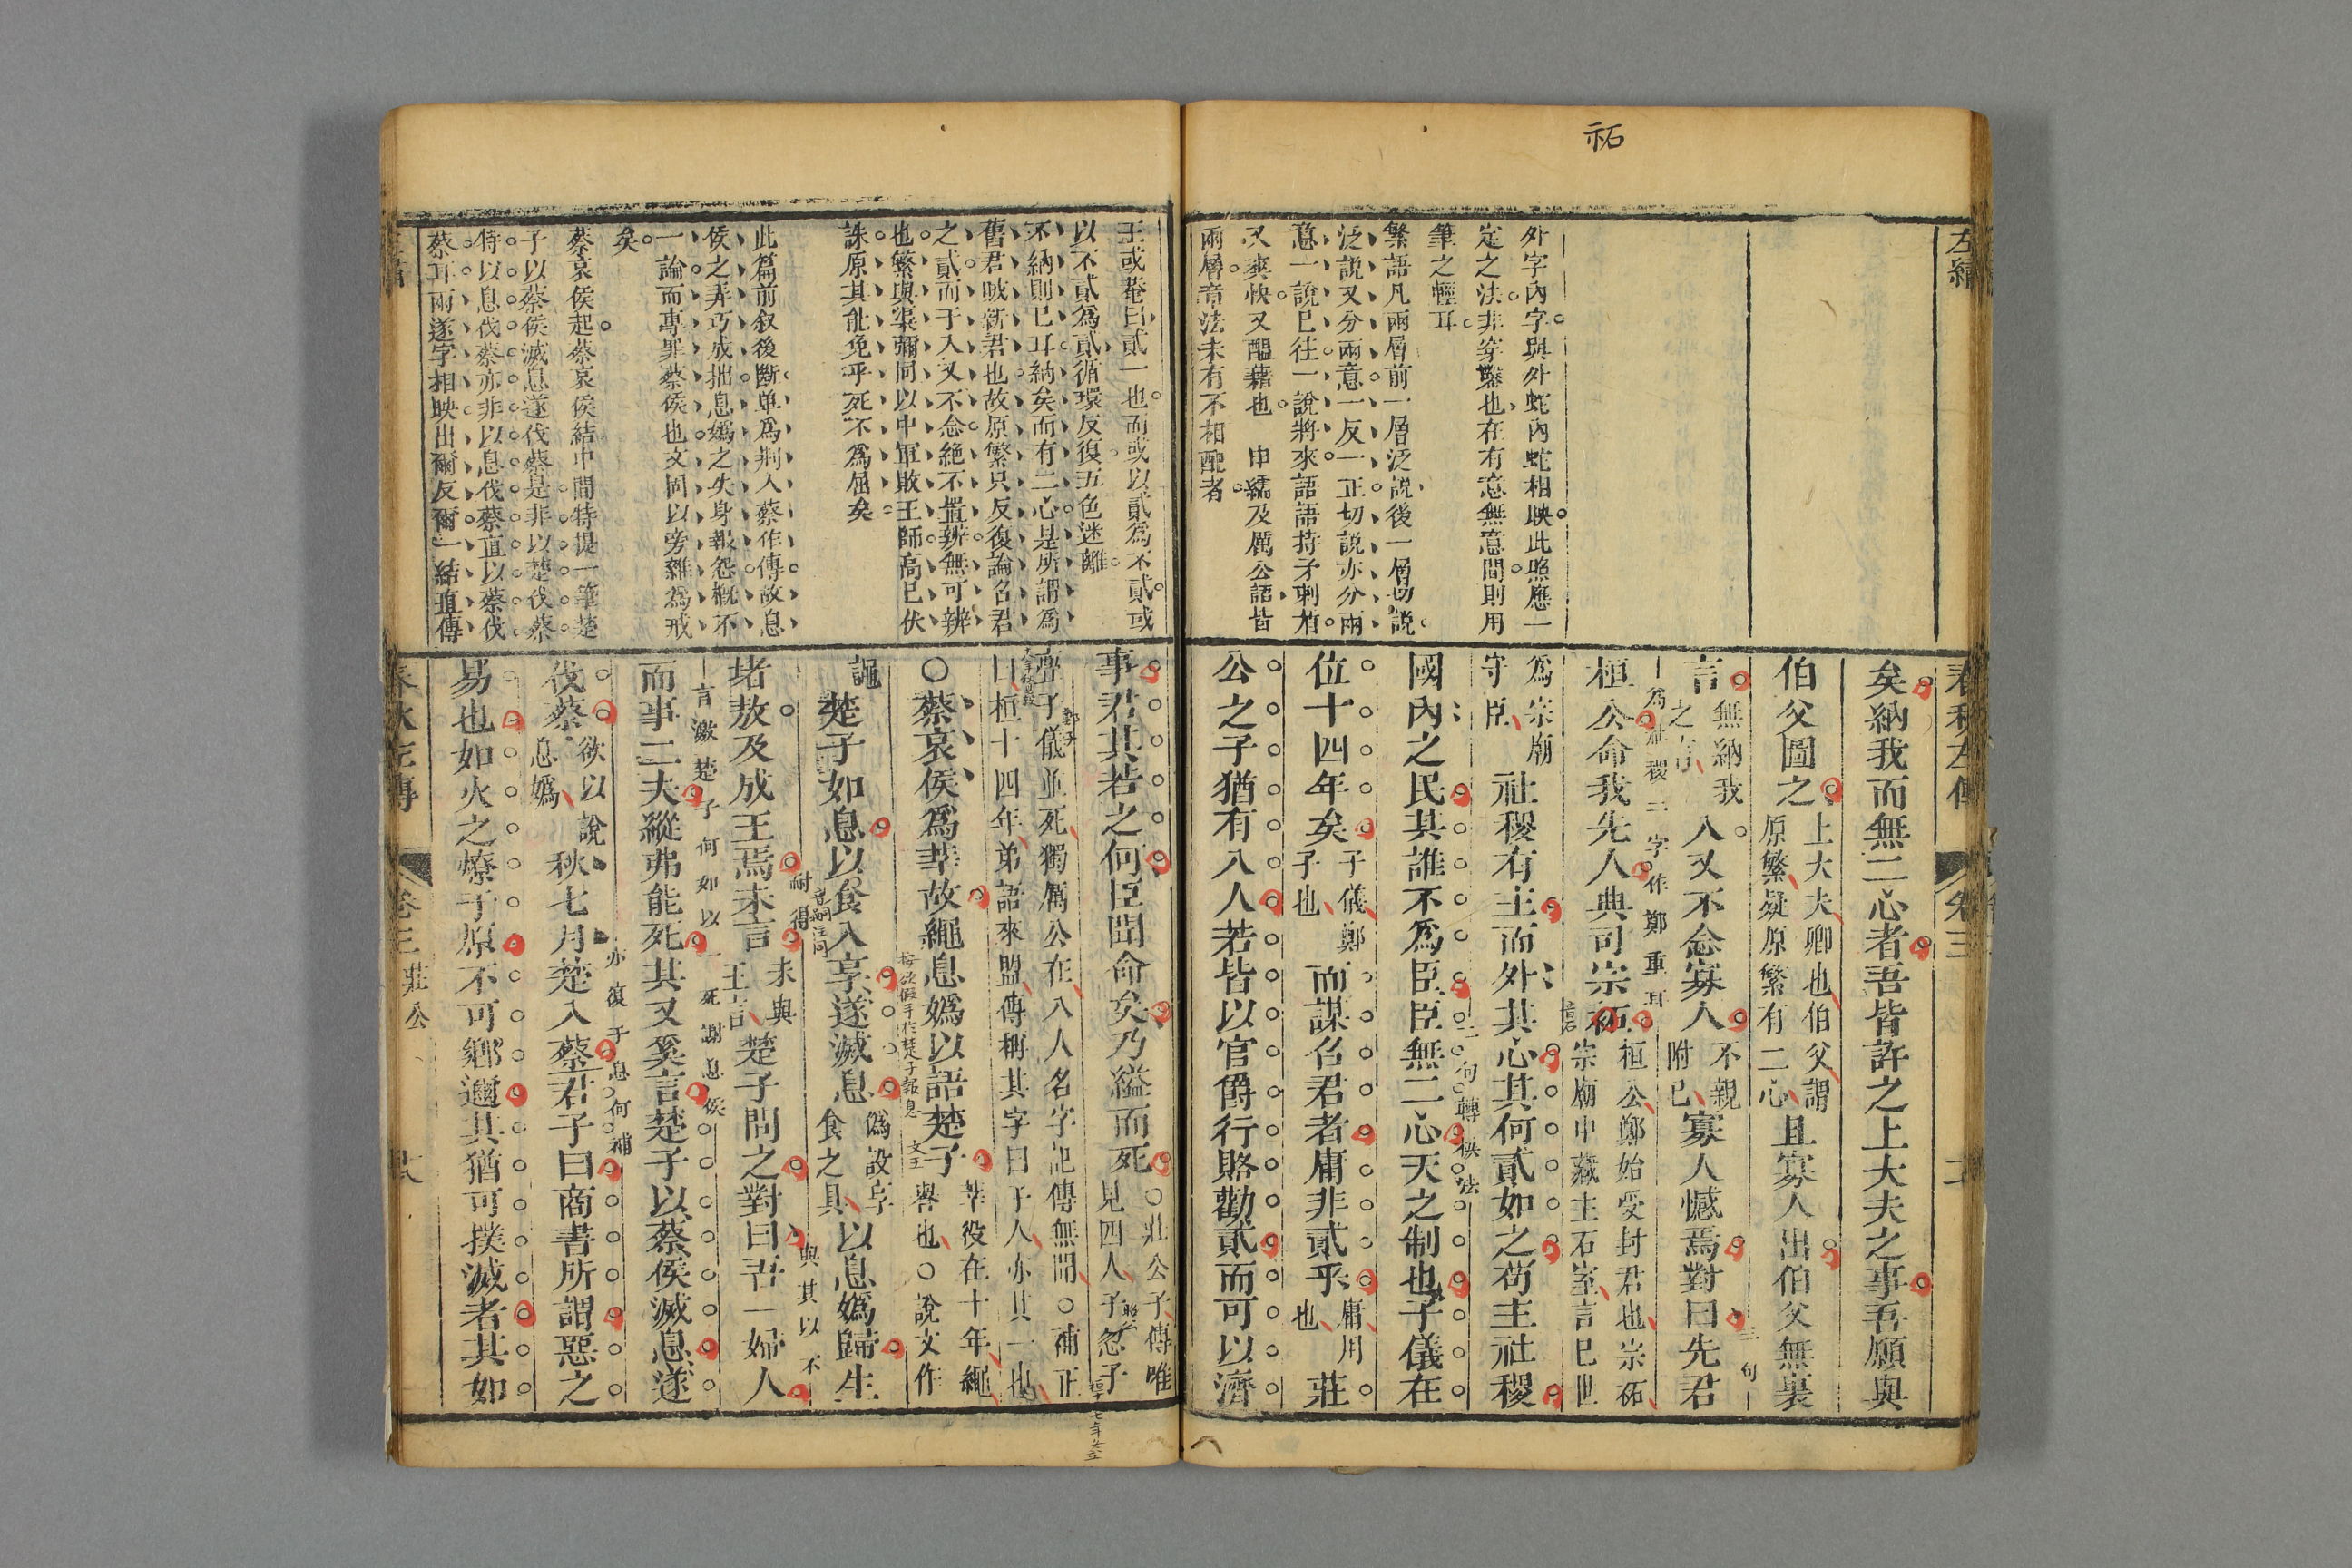 祏
左繡
外字內字與外蛇內蛇相映此照應一
定之法非穿鑿也在有意無意間則用
筆之輕耳
繁語凡兩層前一層泛說後一層切說
泛說又分兩意一反一正切說亦分兩
意一說已往一說將來語語持矛刺盾
又爽快又醞藉也 申繻及厲公語皆
兩層章法未有不相配者
春秋左傳
卷三
矣納我而無二心者吾皆許之上大夫之事吾願與
伯父圖之上大夫卿也伯父謂原繁疑原繁有二心且寡人出伯父無裏
三句
言無納我之言入又不念寡人不親附已寡人憾焉對曰先君
為社稷二字作鄭重耳
桓公命我先人典司宗祏桓公鄭始受封君也宗祏宗廟中藏主石室言已世
為宗廟守臣社稷有主而外其心其何貳如之苟主社稷
二句轉換法
國內之民其誰不為臣臣無二心天之制也子儀在
位十四年矣子儀鄭子也而謀召君者庸非貳乎庸用也莊
公之子猶有八人若皆以官爵行賂勸貳而可以濟
王或菴曰貳一也而或以貳為不貳或
以不貳為貳循環反復五色迷離
不納則已耳納矣而有二心是所謂為
舊君賊新君也故原繁只反復論名君
之貳而于入又不念絕不置辨無可辨
也繁與渠彌同以中軍敗王師高已伏
誅原其能免乎死不為屈矣
此篇前叙後斷単為荆入蔡作傳故息
侯之弄巧成拙息媯之失身報怨概不
一論而專罪蔡侯也文固以旁雜為戒
矣
蔡哀侯起蔡哀侯結中間特提一筆楚
子以蔡侯滅息遂伐蔡是非以楚伐蔡
侍以息伐蔡亦非以息伐蔡直以蔡伐
蔡耳兩遂字相映出爾反爾一結直傳
事君其若之何臣聞命矣乃縊而死○莊公子傳唯見四人子忽子
亹子儀並死獨厲公在八人名字記傳無聞○補正曰桓十四年弟語來盟傳稱其字曰子人亦其一也
○蔡哀侯為莘故繩息媯以語楚子莘役在十年繩譽也○說文作
譝楚子如息以食入享遂滅息偽設享食之具以息媯歸生
耐得
與其以不
堵敖及成王焉未言未與王言楚子問之對曰吾一婦人
言激楚子何如以一死謝息侯
而事二夫縱弗能死其又奚言楚子以蔡侯滅息遂
伐蔡欲以說息媯秋七月楚入蔡君子曰商書所謂惡之
亦復于息何補
易也如火之燎于原不可鄉邇其猶可撲滅者其如
春秋左傳
卷三
莊公